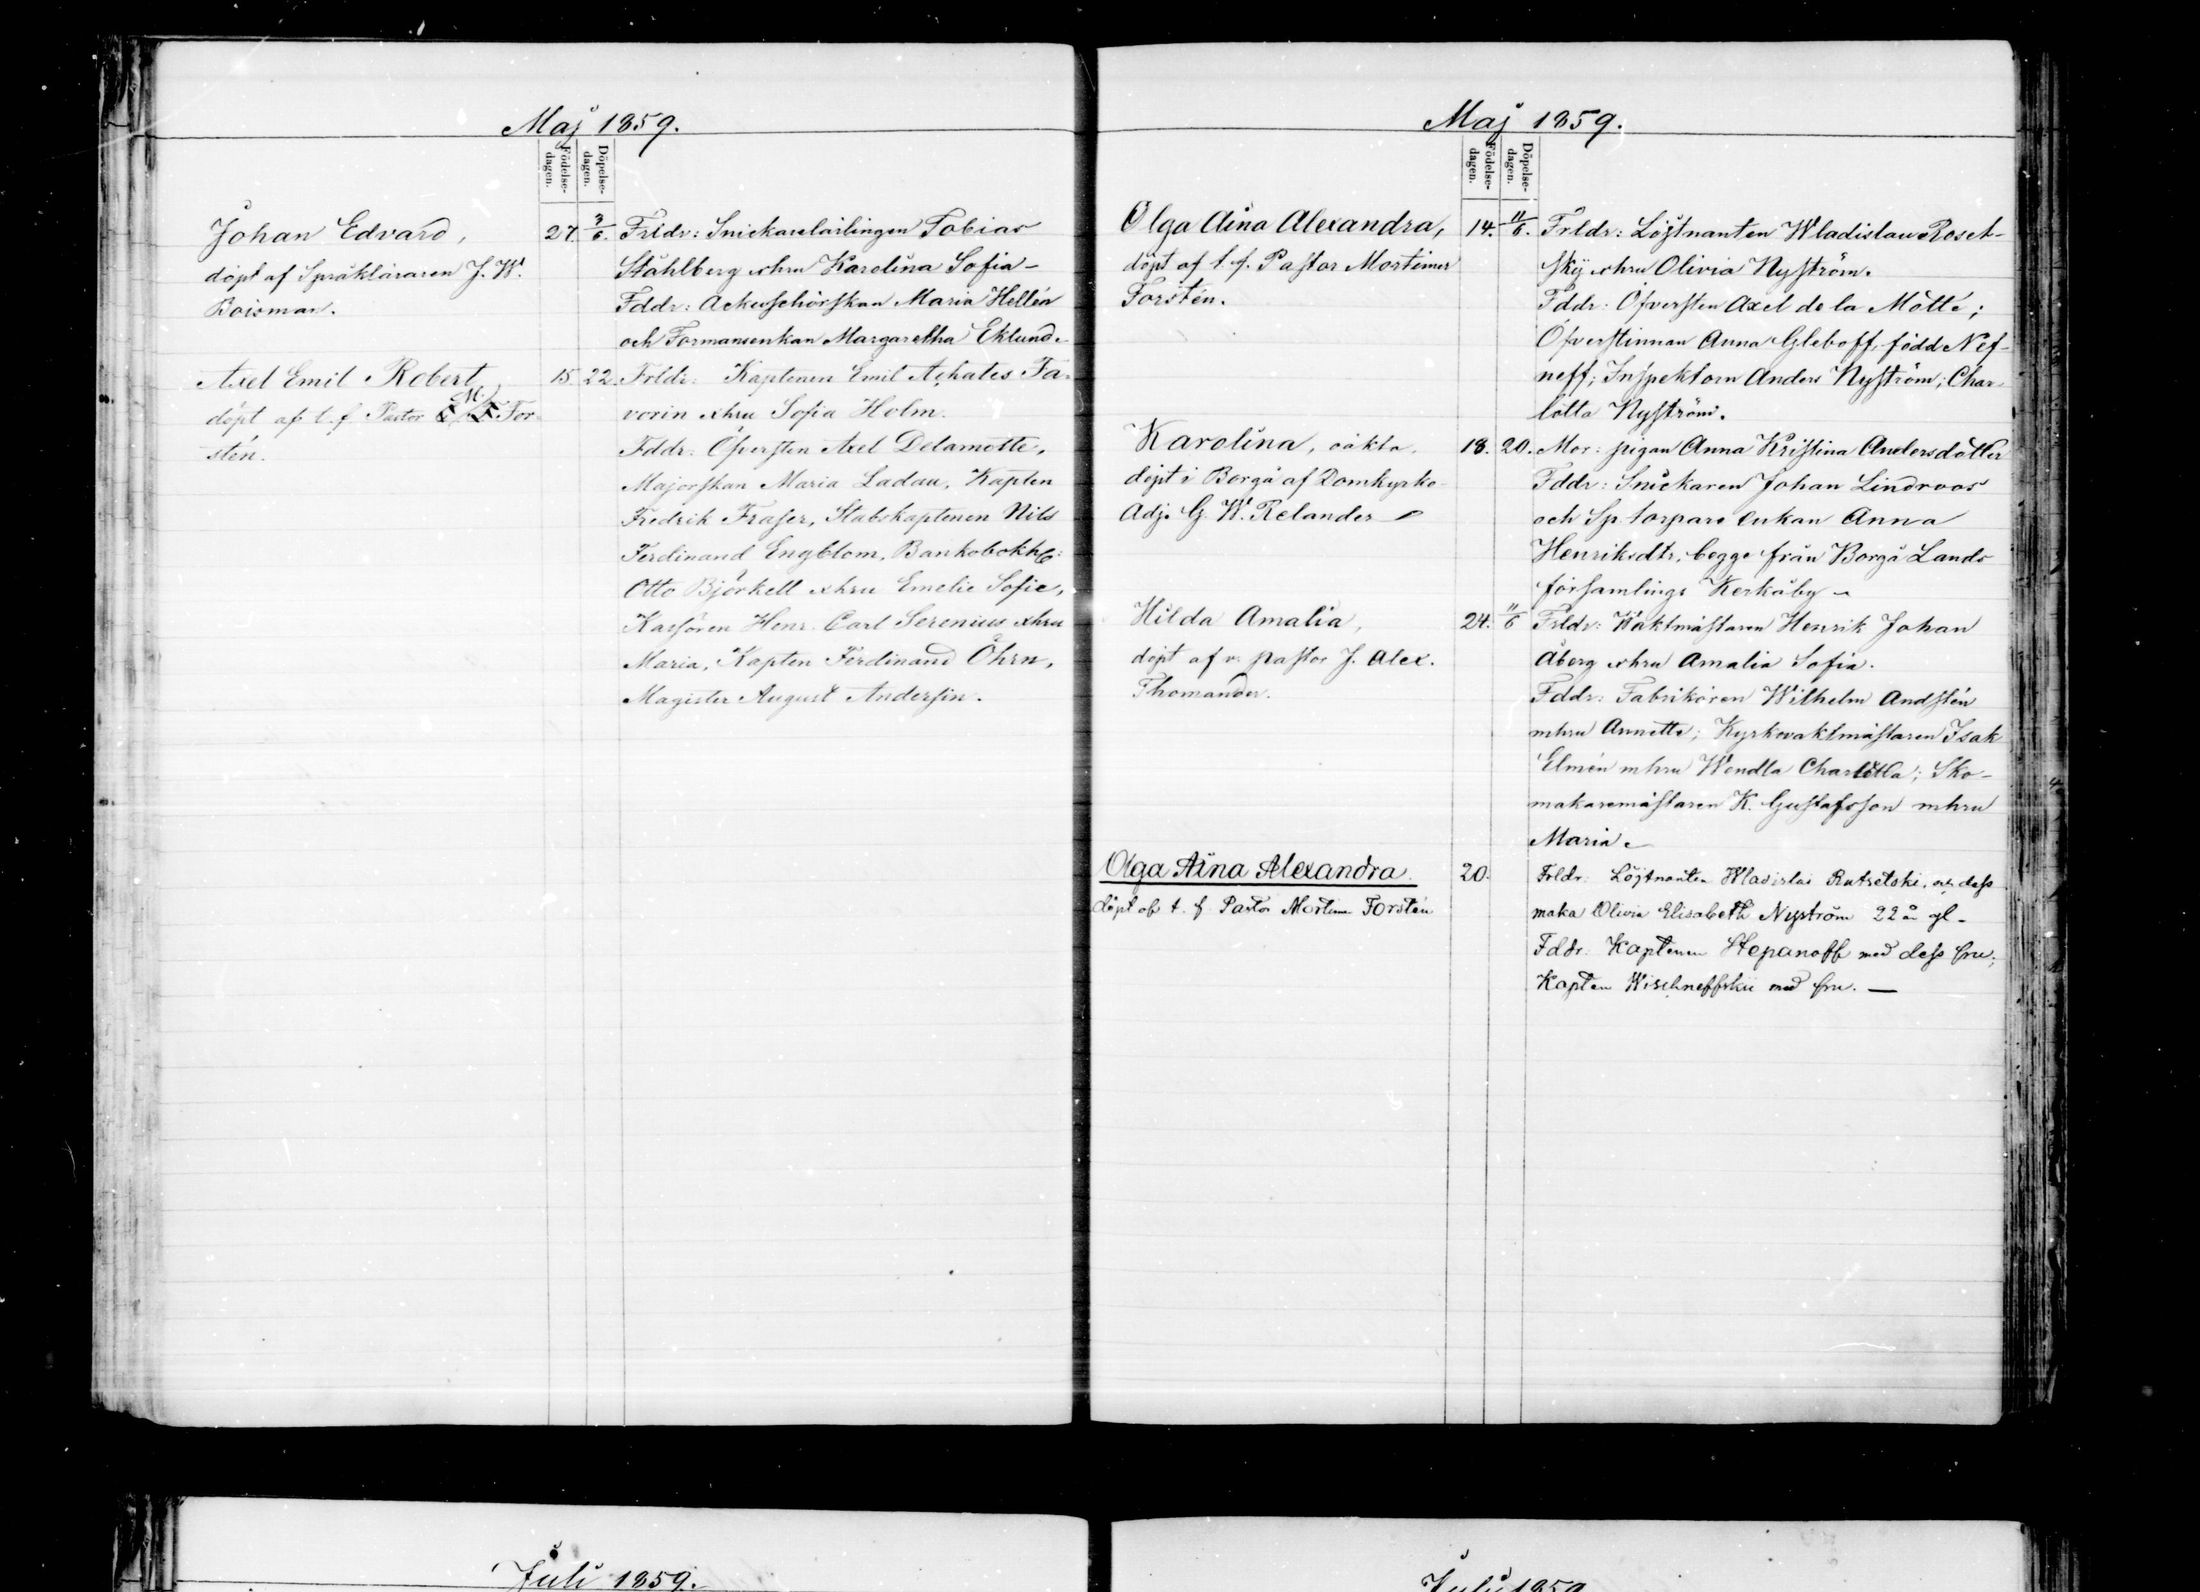 Maj 1859.
Födelse-
dagen.
Döpelse-
dagen.
Johan Edvard,
döpt af Språkläraren J. W.
Boisman.
27. 3/6.
Frldr: Snickarelärlingen Tobias
Ståhlberg o hru Karolina Sofia -
Fddr: Maria Hellén
och Formansenkan Margaretha Eklund.
Axel Emil Robert
döpt af t. f. Pastor M. For-
stén.
15. 22.
Frldr: Kaptenen Emil Achates Fa-
vorin o hru Sofia Holm.
Fddr: Öfversten Axel Delamotte,
Majorskan Maria Ladau, Kapten
Fredrik Fraser, Stabskaptenen Nils
Ferdinand Engblom, Bankobokh:
Otto Björkell o hru Emelie Sofie,
Kassören Henr. Carl Serenius o hru
Maria, Kapten Ferdinand Öhrn,
Magister August Andersin.
Maj 1859.
Födelse-
dagen.
Döpelse-
dagen.
Olga Aina Alexandra,
döpt af t. f. Pastor Mortimer
Forstén.
14. 11/6.
Frldr: Löjtnanten Wladislau Roset-
skij o hru Olivia Nyström.
Fddr: Öfversten Axel de la Motte;
Öfverstinnan Anna Gleboff, född Nef-
neff; Inspektorn Anders Nyström; Char-
lotta Nyström.
Karolina, oäkta,
döpt i Borgå af Domkyrko-
Adj. G. W. Relander
18. 20.
Mor: pigan Anna Kristina Andersdotter
Fddr: Snickaren Johan Lindroos
och Sp. torpare enkan Anna
Henriksdtr, begge från Borgå Lands
församlings Kerkåby
Hilda Amalia,
döpt af v. pastor J. Alex.
Thomander.
24. 11/6
Frldr: Waktmästaren Henrik Johan
Åberg o hru Amalia Sofia.
Fddr: Fabrikören Wilhelm Andstén
m hru Annette; Kyrkovaktmästaren Isak
Elmén m hru Wendla Charlotta; Sko-
makaremästaren K. Gustafsson m hru
Maria.
Olga Aina Alexandra.
döpt af t. f. Pastor Mortimer Forstén
20.
Frldr: Löjtnanten Wladislai Rutsetski, och dess
maka Olivia Elisabeth Nyström 22 år gl.
Fddr: Kaptenen Stepanoff med dess fru;
Kapten Wischneffskii med fru. —
Juli 1859.
Juli 1859